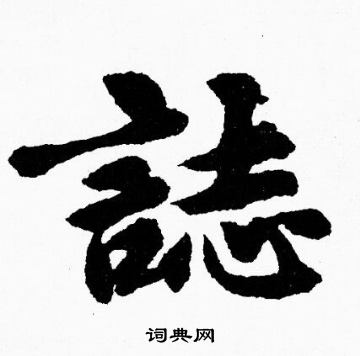 誌
词典网